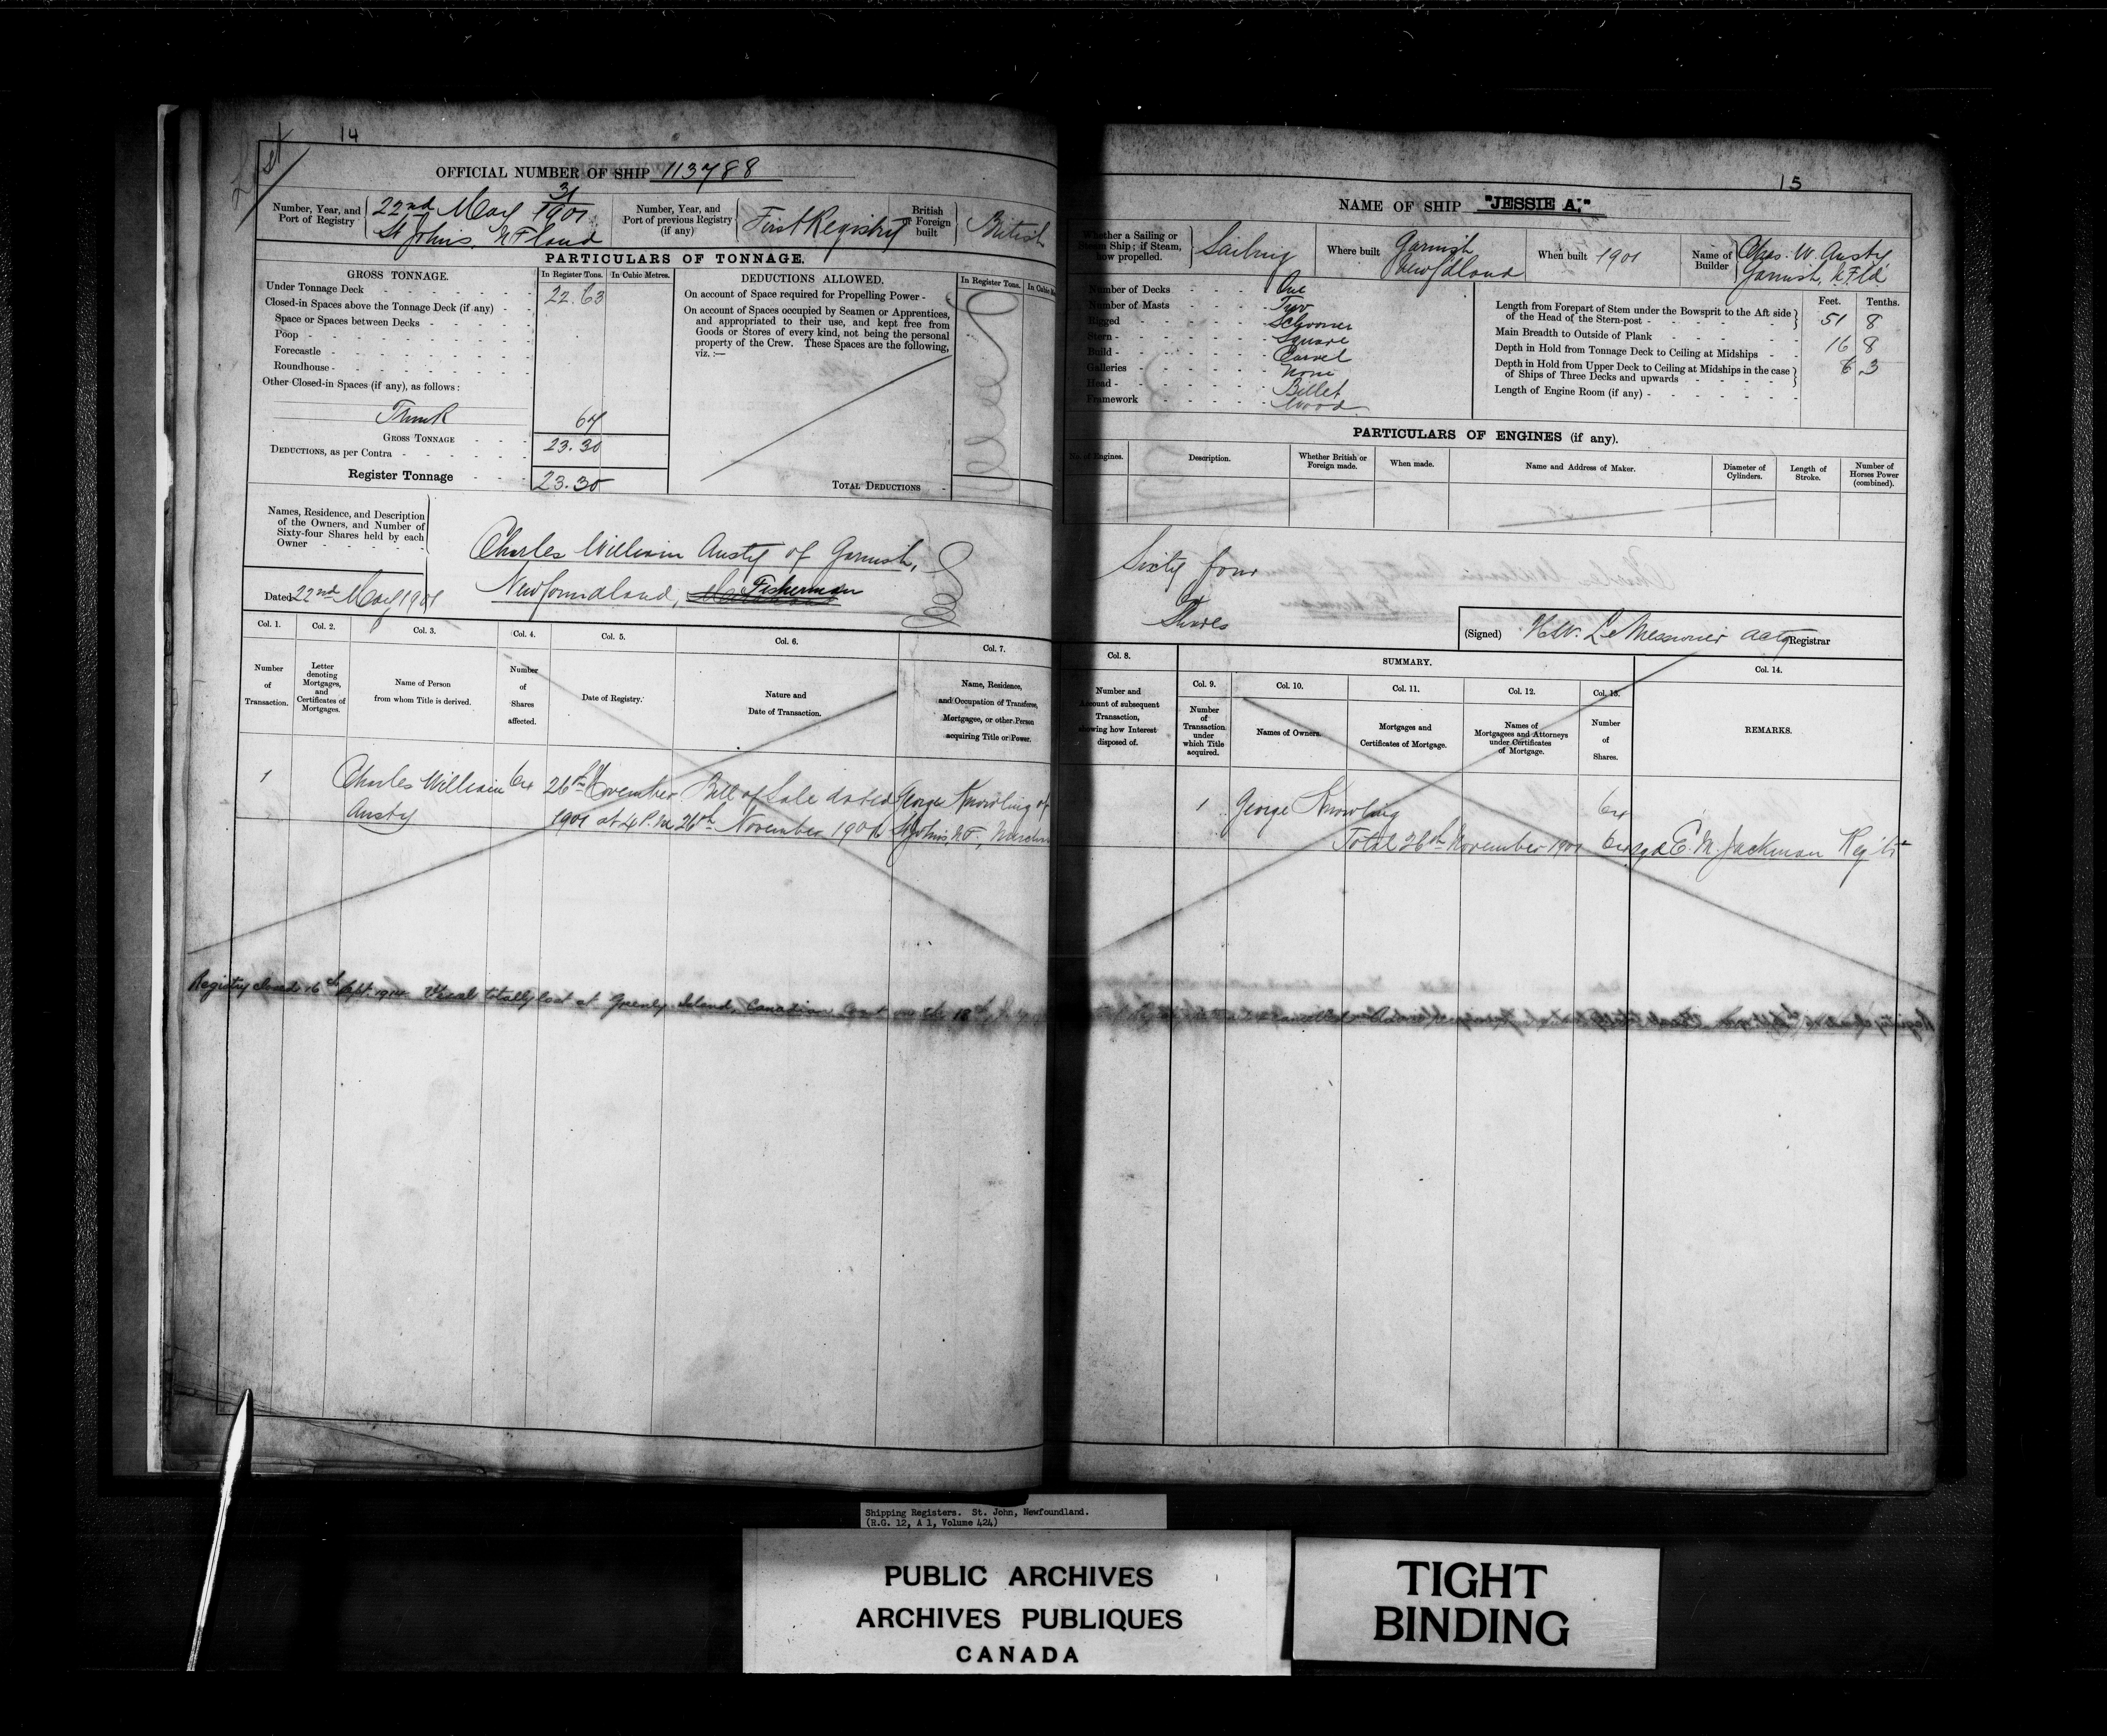 14
OFFICIAL NUMBER OF SHIP 113788
Number, Year, and Port of Registry
22nd May 31/1901
St Johns, NFland
Number, Year, and Port of previous Registry (if any)
First Registry
British Foreign built
British
PARTICULARS OF TONNAGE.
GROSS TONNAGE.
In Register Tons.
In Cubic Metres.
DEDUCTIONS ALLOWED.
In Register Tons.
Under Tonnage Deck 22.63
Closed-in Spaces above the Tonnage Deck (if any)
Space or Spaces between Decks
Poop
Forecastle
Roundhouse
Other Closed-in Spaces (if any), as follows:
Trunk 67
GROSS TONNAGE 23.30
DEDUCTIONS, as per Contra
Register Tonnage 23.30
On account of Space required for Propelling Power
On account of Spaces occupied by Seamen or Apprentices,
and appropriated to their use, and kept free from
Goods or Stores of every kind, not being the personal
property of the Crew. These Spaces are the following,
viz. :—
TOTAL DEDUCTIONS
Names, Residence, and Description
of the Owners, and Number of
Sixty-four Shares held by each
Owner
Charles William Austy of Garnish,
Newfoundland, Fisherman
Dated 22nd May 1901
Col. 1.
Col. 2.
Col. 3.
Col. 4.
Col. 5.
Col. 6.
Col. 7.
Number of Transaction.
Letter denoting Mortgages, and Certificates of Mortgages.
Name of Person from whom Title is derived.
Number of Shares affected.
Date of Registry.
Nature and Date of Transaction.
Name, Residence, and Occupation of Transferee, Mortgagee, or other Person acquiring Title or Power.
1 Charles William 64 26th November Bill of Sale dated George Knowling of
Austy 1901 at 4 P.M. 26th November 1901 St Johns, NF,
Registry closed 16th Sept. 1914. Vessel totally lost at Greenly Island, Canadian
15
NAME OF SHIP "JESSIE A."
Whether a Sailing or Steam Ship; if Steam, how propelled.
Sailing
Where built
Garnish
Newfdland
When built 1901
Name of Builder
Chas. W. Austy
Garnish, N.Fld
Number of Decks One
Number of Masts Two
Rigged Schooner
Stern Square
Build Carvel
Galleries None
Head Billet
Framework Wood
Feet. Tenths.
Length from Forepart of Stem under the Bowsprit to the Aft side of the Head of the Stern-post 51 8
Main Breadth to Outside of Plank 16 8
Depth in Hold from Tonnage Deck to Ceiling at Midships 6 3
Depth in Hold from Upper Deck to Ceiling at Midships in the case of Ships of Three Decks and upwards
Length of Engine Room (if any)
PARTICULARS OF ENGINES (if any).
No. of Engines.
Description.
Whether British or Foreign made.
When made.
Name and Address of Maker.
Diameter of Cylinders.
Length of Stroke.
Number of Horses Power (combined).
Sixty four
Shares
(Signed) H.W. LeMessurier actg Registrar
Col. 8.
SUMMARY.
Col. 14.
Col. 9.
Col. 10.
Col. 11.
Col. 12.
Col. 13.
Number and Account of subsequent Transaction, showing how Interest disposed of.
Number of Transaction under which Title acquired.
Names of Owners.
Mortgages and Certificates of Mortgage.
Names of Mortgagees and Attorneys under Certificates of Mortgage.
Number of Shares.
REMARKS.
1 George Knowling 64
Total 26th November 1901 64 sgd E.M. Jackman Regstr
Shipping Registers. St. John, Newfoundland.
(R.G. 12, A 1, Volume 424)
PUBLIC ARCHIVES
ARCHIVES PUBLIQUES
CANADA
TIGHT
BINDING